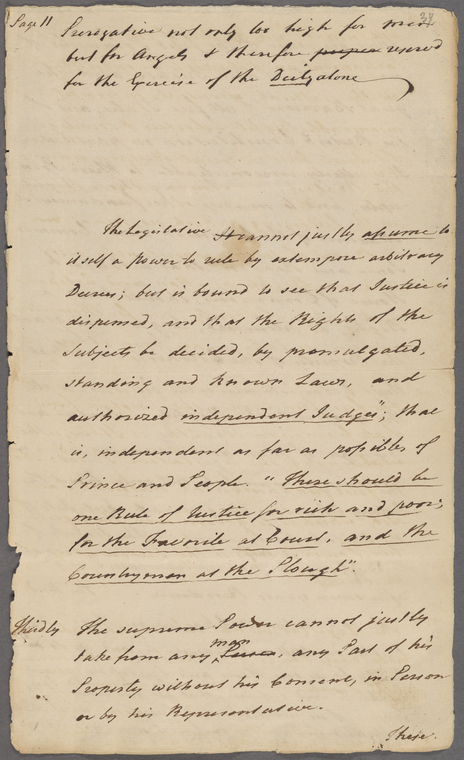 Page 11
38
Prerogative not only too high for men
but for Angels & therefore proper reserved
for the Exercise of the Deity alone
The Legislative It cannot justly assume to
itself a Power to rule by extempore arbitrary
Decrees; but is bound to see that Justice is
dispensed, and that the Rights of the
Subjects be decided, by promulgated,
standing and known Laws, and
authorized independent Judges"; that
is, independent as far as possible of
Prince and People. "There should be
one Rule of Justice for rich and poor;
for the Favorite at Court, and the
Countryman at the Plough".
Thirdly The supreme Power cannot justly
man
take from any Person, any Part of his
Property without his Consent, in Person
or by his Representative.
These